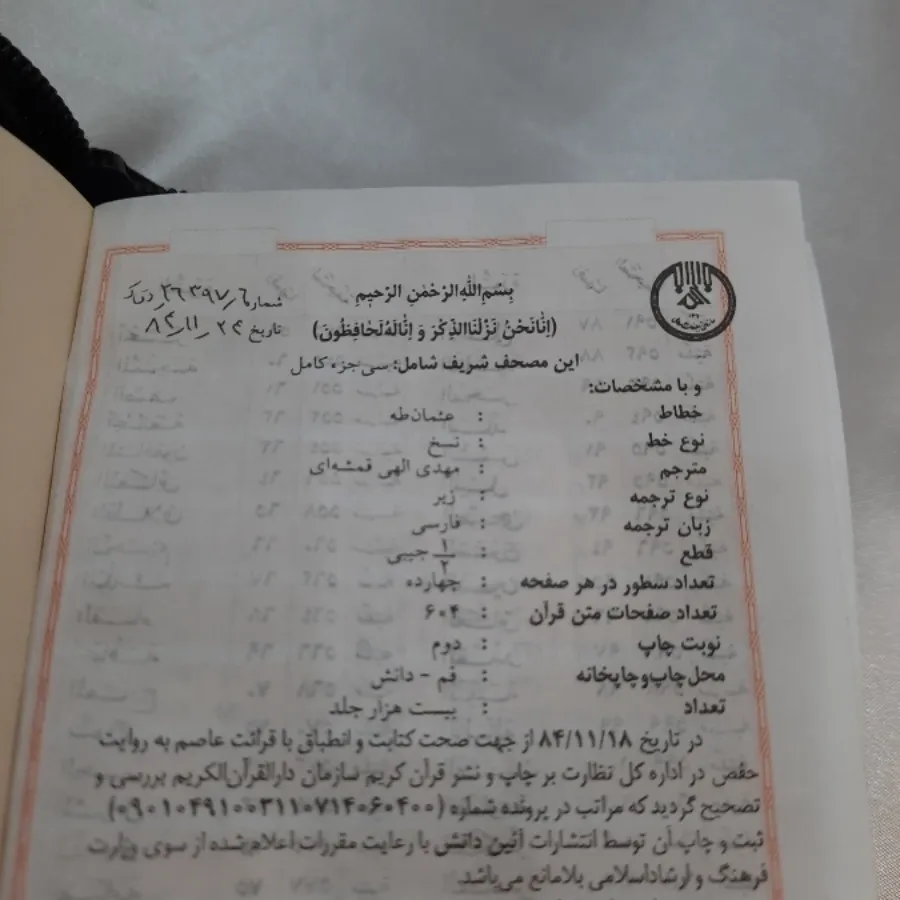 بِسْمِ اللهِ الرَّحْمٰنِ الرَّحِيمِ
شماره ۲۶۳۹۷/۶
(اِنّٰا نَحْنُ نَزَّلْنَا الذِّكْرَ وَ اِنّٰا لَهُ لَحٰافِظُونَ)
تاریخ ۸۴/۱۱/۲۴
این مصحف شریف شامل: سی جزء کامل
و با مشخصات:
خطاط : عثمان طه
نوع خط : نسخ
مترجم : مهدی الهی قمشه‌ای
نوع ترجمه : زیر
زبان ترجمه : فارسی
قطع : ۱/۲ جیبی
تعداد سطور در هر صفحه : چهارده
تعداد صفحات متن قرآن : ۶۰۴
نوبت چاپ : دوم
محل چاپ و چاپخانه : قم - دانش
تعداد : بیست هزار جلد
در تاریخ ۸۴/۱۱/۱۸ از جهت صحت کتابت و انطباق با قرائت عاصم به روایت
حفص در اداره کل نظارت بر چاپ و نشر قرآن کریم سازمان دارالقرآن‌الکریم بررسی و
تصحیح گردید که مراتب در پرونده شماره (۰۹۰۱۰۴۹۱۰۰۳۱۱۰۷۱۴۰۶۰۴۰۰)
ثبت و چاپ آن توسط انتشارات آئین دانش با رعایت مقررات اعلام شده از سوی وزارت
فرهنگ و ارشاد اسلامی بلامانع می‌باشد.